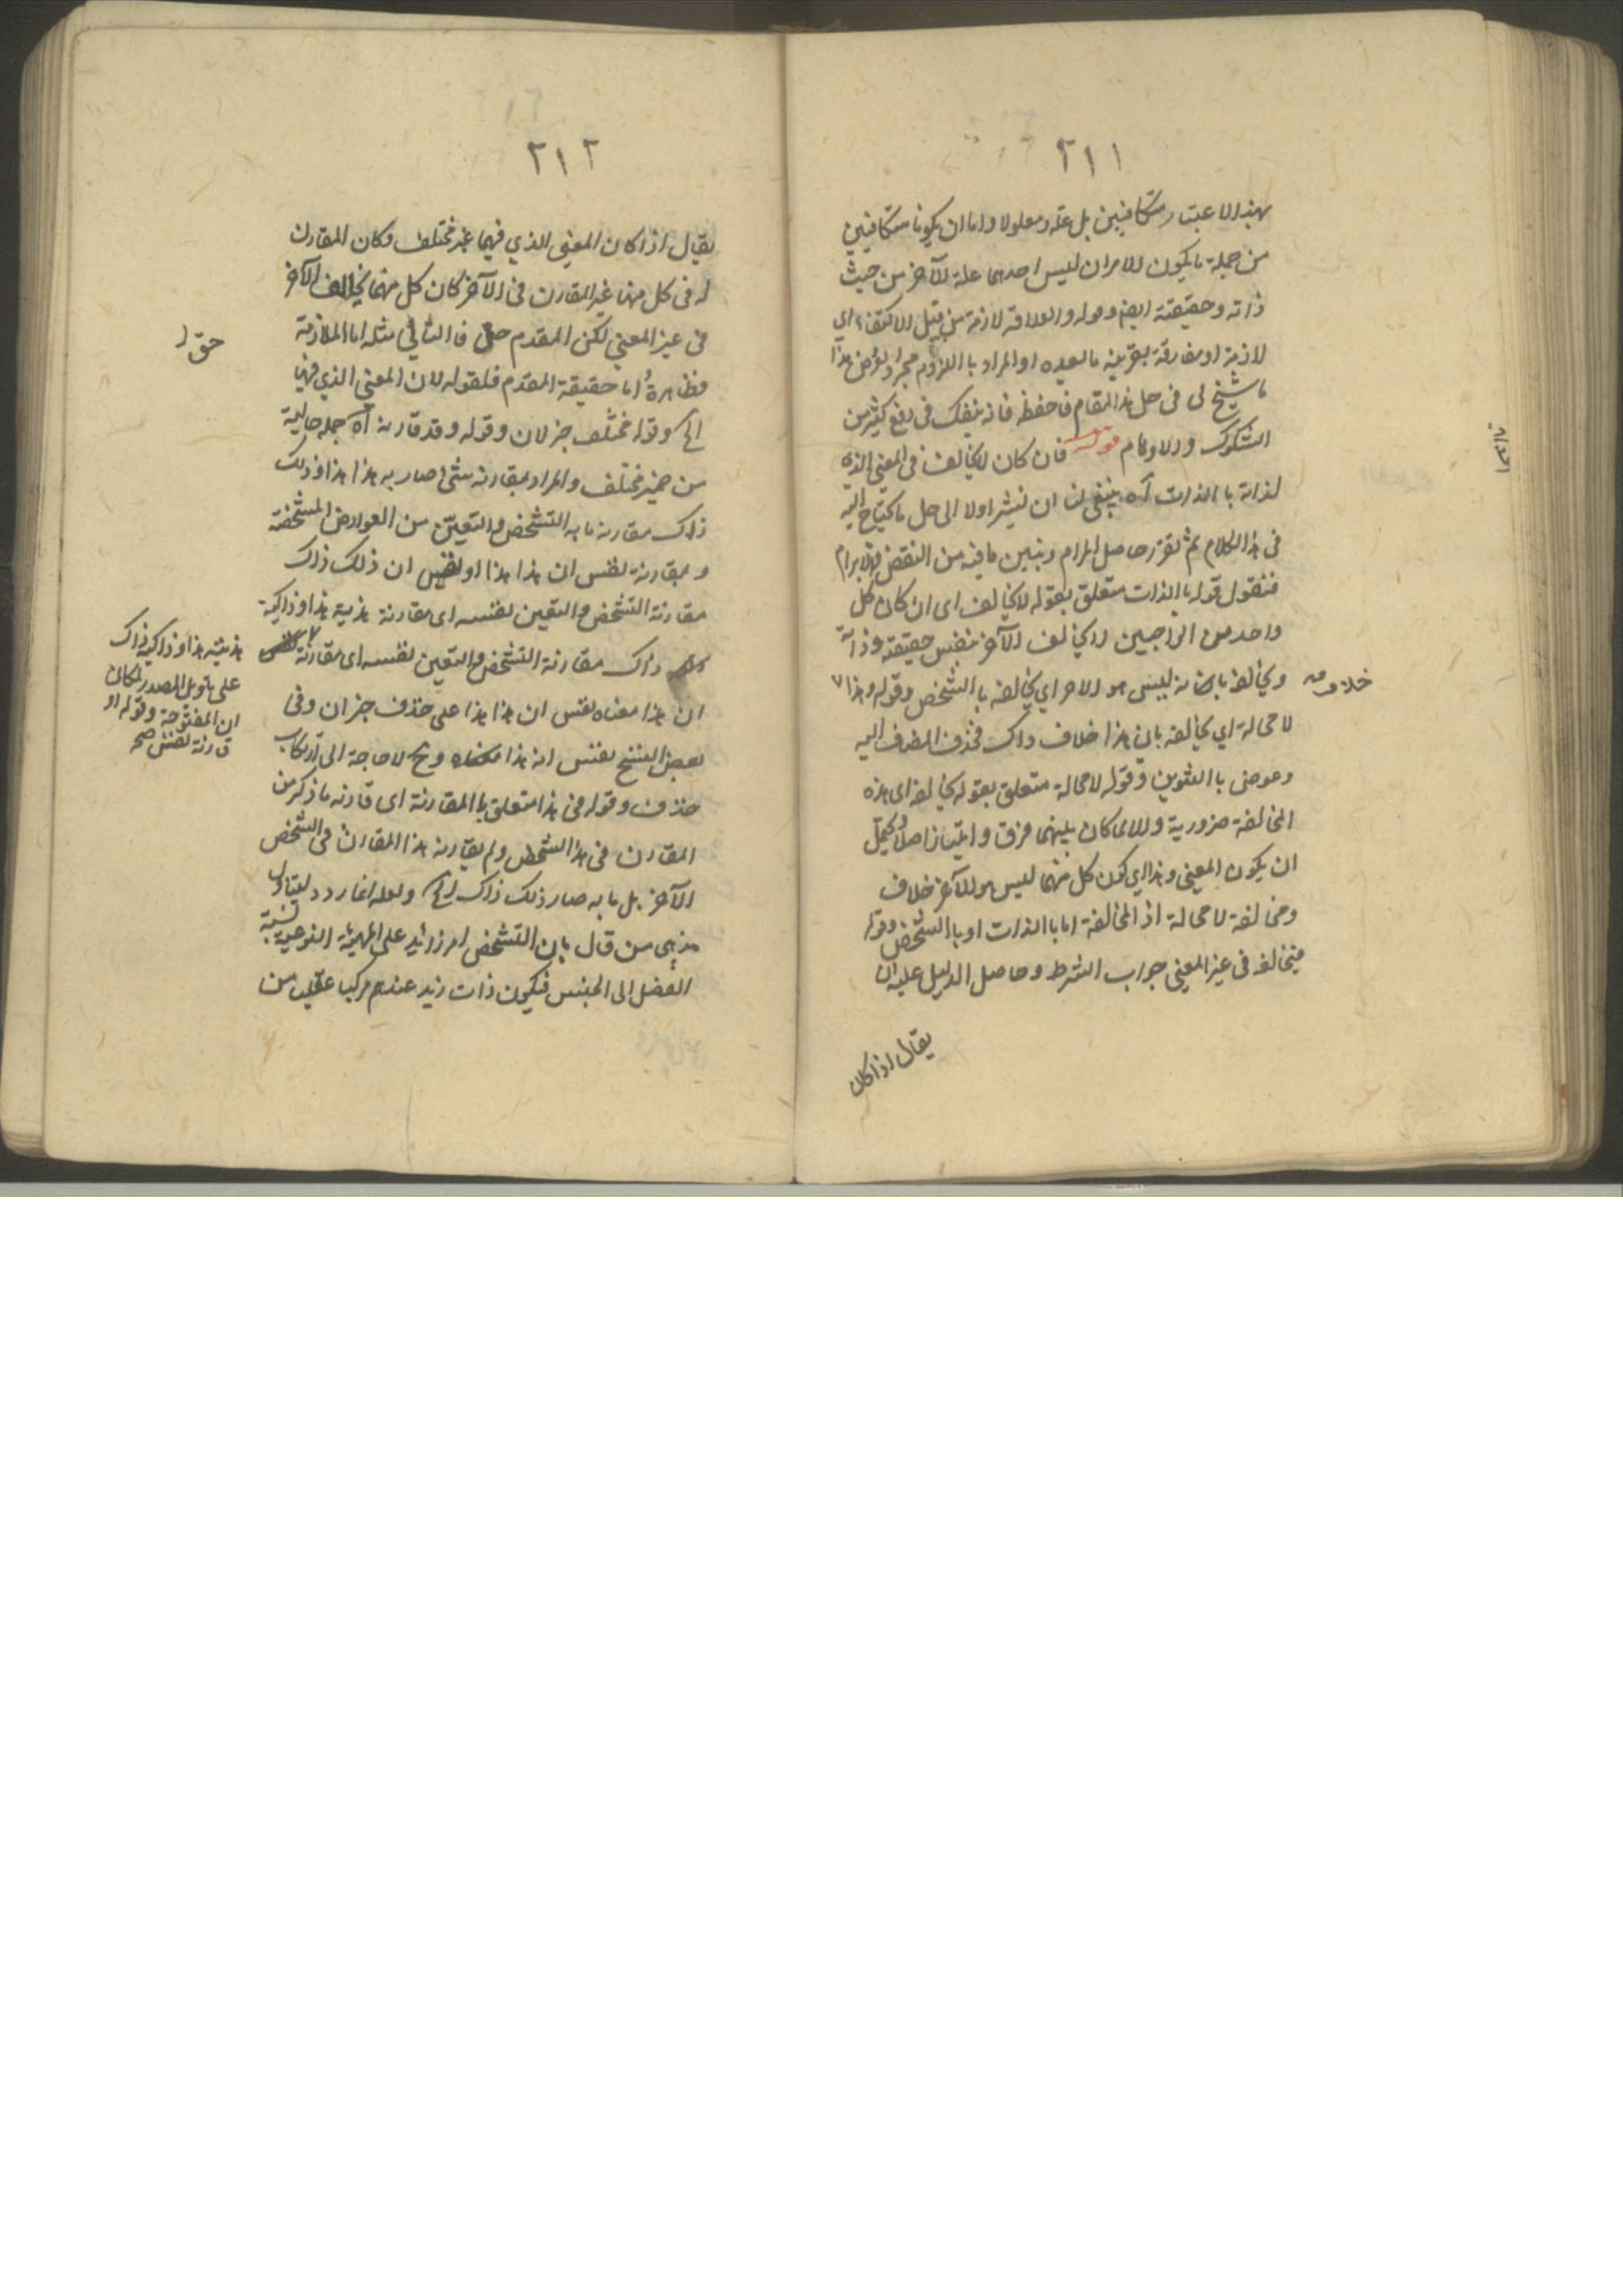 ٢١١
بهذا الاعتبار متكافيين بل علة ومعلولا واما ان يكونا متكافيين
من جملة ما يكون الامران ليس احدهما علة للآخر من حيث
ذاته وحقيقته ايضا وقوله والعلاقة لازمة من قبيل الاكتفاء اي
لازمة او مفارقة بقرينة ما بعده او المراد باللزوم مجرد هذا
ما سنح لي في حل هذا المقام فاحفظه فانه ينفعك في دفع كثير من
الشكوك والاوهام قوله فان كان لا يخالف في المعنى الذي
لذاته بالذات آه ينبغي لنا ان نشير اولا الى حل ما يحتاج اليه
في هذا الكلام ثم نقرر حاصل المرام ونبين ما فيه من النقض والابرام
فنقول قوله بالذات متعلق بقوله لا يخالف اى ان كان كل
واحد من الواجبين لا يخالف الآخر بنفس حقيقته وذاته
ويخالفه بانه ليس هو الاخر اي يخالفه بالتشخص وقوله وهذا
خلاف صه
لا محالة اي يخالفه بان هذا خلاف ذاك فحذف المضاف اليه
وعوض بالتنوين وقوله لا محالة متعلق بقوله يخالفه اى هذه
المخالفة ضرورية والا لما كان بينهما فرق وامتياز اصلا ويحتمل
ان يكون المعنى وهذا اي كون كل منهما ليس هو الآخر خلاف
ومخالفة لا محالة اذ المخالفة اما بالذات او بالتشخص وقوله
فيخالفه في غير المعنى جواب الشرط وحاصل الدليل عليه ان
يقال اذا كان
٢١٢
يقال اذا كان المعنى الذي فيهما غير مختلف وكان المقارن
له في كل منهما غير المقارن في الآخر كان كل منهما يخالف الآخر
في غير المعنى لكن المقدم حق فالتالي مثله اما الملازمة
حق
فظاهرة اما حقيقة المقدم فلقوله لان المعنى الذي فيهما
الخ وقوله مختلف خبر لان وقوله وقد قارنه آه جملة حالية
من ضمير مختلف والمراد بمقارنة شئ صار به هذا هذا وذلك
ذاك مقارنة ما به التشخص والتعين من العوارض المشخصة
وبمقارنة نفس ان هذا هذا او نفس ان ذلك ذاك
مقارنة التشخص والتعين لنفسه اى مقارنة هذية هذا وذاكية
ذاك مقارنة التشخص والتعين لنفسه اى مقارنة
هذيته هذا وذاكية ذاك
على تأويل المصدر لمكان
ان المفتوحة وقوله او
قارنة نفس صح
ان هذا معناه نفس ان هذا هذا على حذف خبر ان وفي
بعض النسخ نفس انه هذا وح لا حاجة الى ارتكاب
حذف وقوله في هذا متعلق بالمقارنة اى قارنه ما ذكر من
المقارن في هذا الشخص ولم يقارنه هذا المقارن في الشخص
الآخر بل ما به صار ذلك ذاك الخ ولعله انما ردد ليتناول
مذهبي من قال بان التشخص امر زائد على المهية النوعية نسبة
الفصل الى الجنس فيكون ذات زيد عندهم مركبا عقليا من